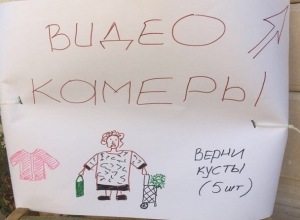 ВИДЕО
КАМЕРЫ
ВЕРНИ
КУСТЫ
(5 шт)